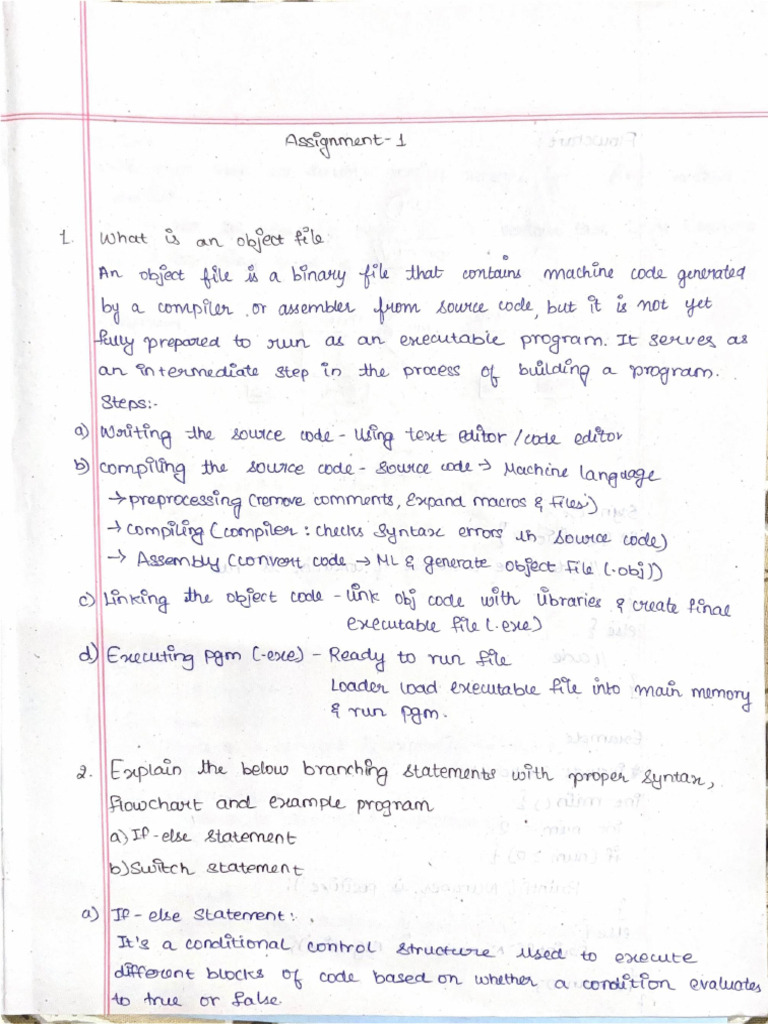 Assignment-1
1. What is an object file
An object file is a binary file that contains machine code generated
by a compiler or assembler from source code, but it is not yet
fully prepared to run as an executable program. It serves as
an intermediate step in the process of building a program.
Steps:-
a) Writing the source code - Using text editor / code editor
b) Compiling the source code - Source code → Machine language
→ preprocessing (remove comments, Expand macros & files)
→ compiling (compiler : checks syntax errors in source code)
→ Assembly (convert code → ML & generate object file (.obj))
c) Linking the object code - Link obj code with libraries & create final
executable file (.exe)
d) Executing pgm (.exe) - Ready to run file
Loader load executable file into main memory
& run pgm.
2. Explain the below branching statements with proper syntax,
flowchart and example program
a) If-else statement
b) Switch statement
a) If - else Statement:
It's a conditional control structure used to execute
different blocks of code based on whether a condition evaluates
to true or false.